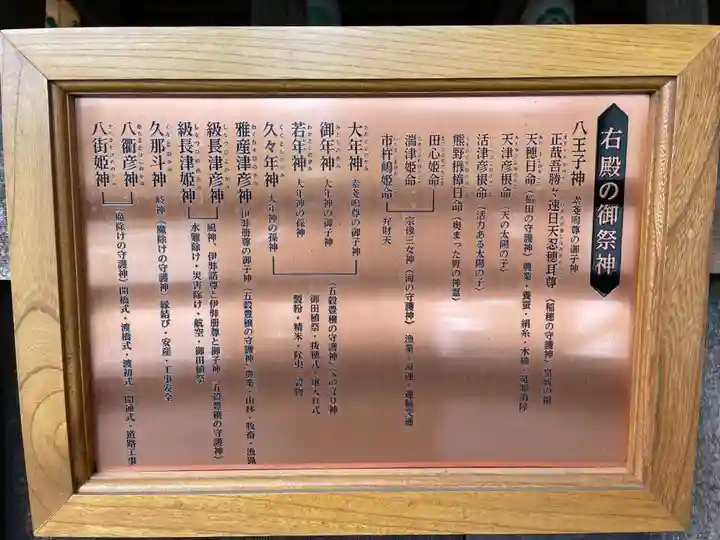 右殿の御祭神
八王子神 素戔嗚尊の御子神
正哉吾勝々速日天忍穂耳尊（稲穂の守護神）皇統の祖
天穂日命（稲田の守護神）興業・養蚕・絹糸・木綿・
天津彦根命（天の太陽の子）
活津彦根命（活力ある太陽の子）
熊野樟日命（奥まった野の神霊）
田心姫命
湍津姫命 宗像三女神（海の守護神）漁業・海運・運輸交通
市杵嶋姫命 弁財天
大年神 素戔嗚尊の御子神
御年神 大年神の御子神
若年神 大年神の孫神
久々年神 大年神の孫神
（五穀豊穣の守護神）
御田植祭・抜穂式・
製粉・精米・除虫・穀物
雅産津彦神 伊弉册尊の御子神（五穀豊穣の守護神）農業・山林・牧畜・漁猟
級長津彦神
級長津姫神
風神、伊弉諾尊と伊弉册尊の御子神（五穀豊穣の守護神）
水難除け・災害除け・航空・御田植祭
久那斗神 岐神（魔除けの守護神）縁結び・安産・工事安全
八衢彦神
八街姫神
（魔除けの守護神）開橋式・渡橋式・渡初式・開通式・道路工事